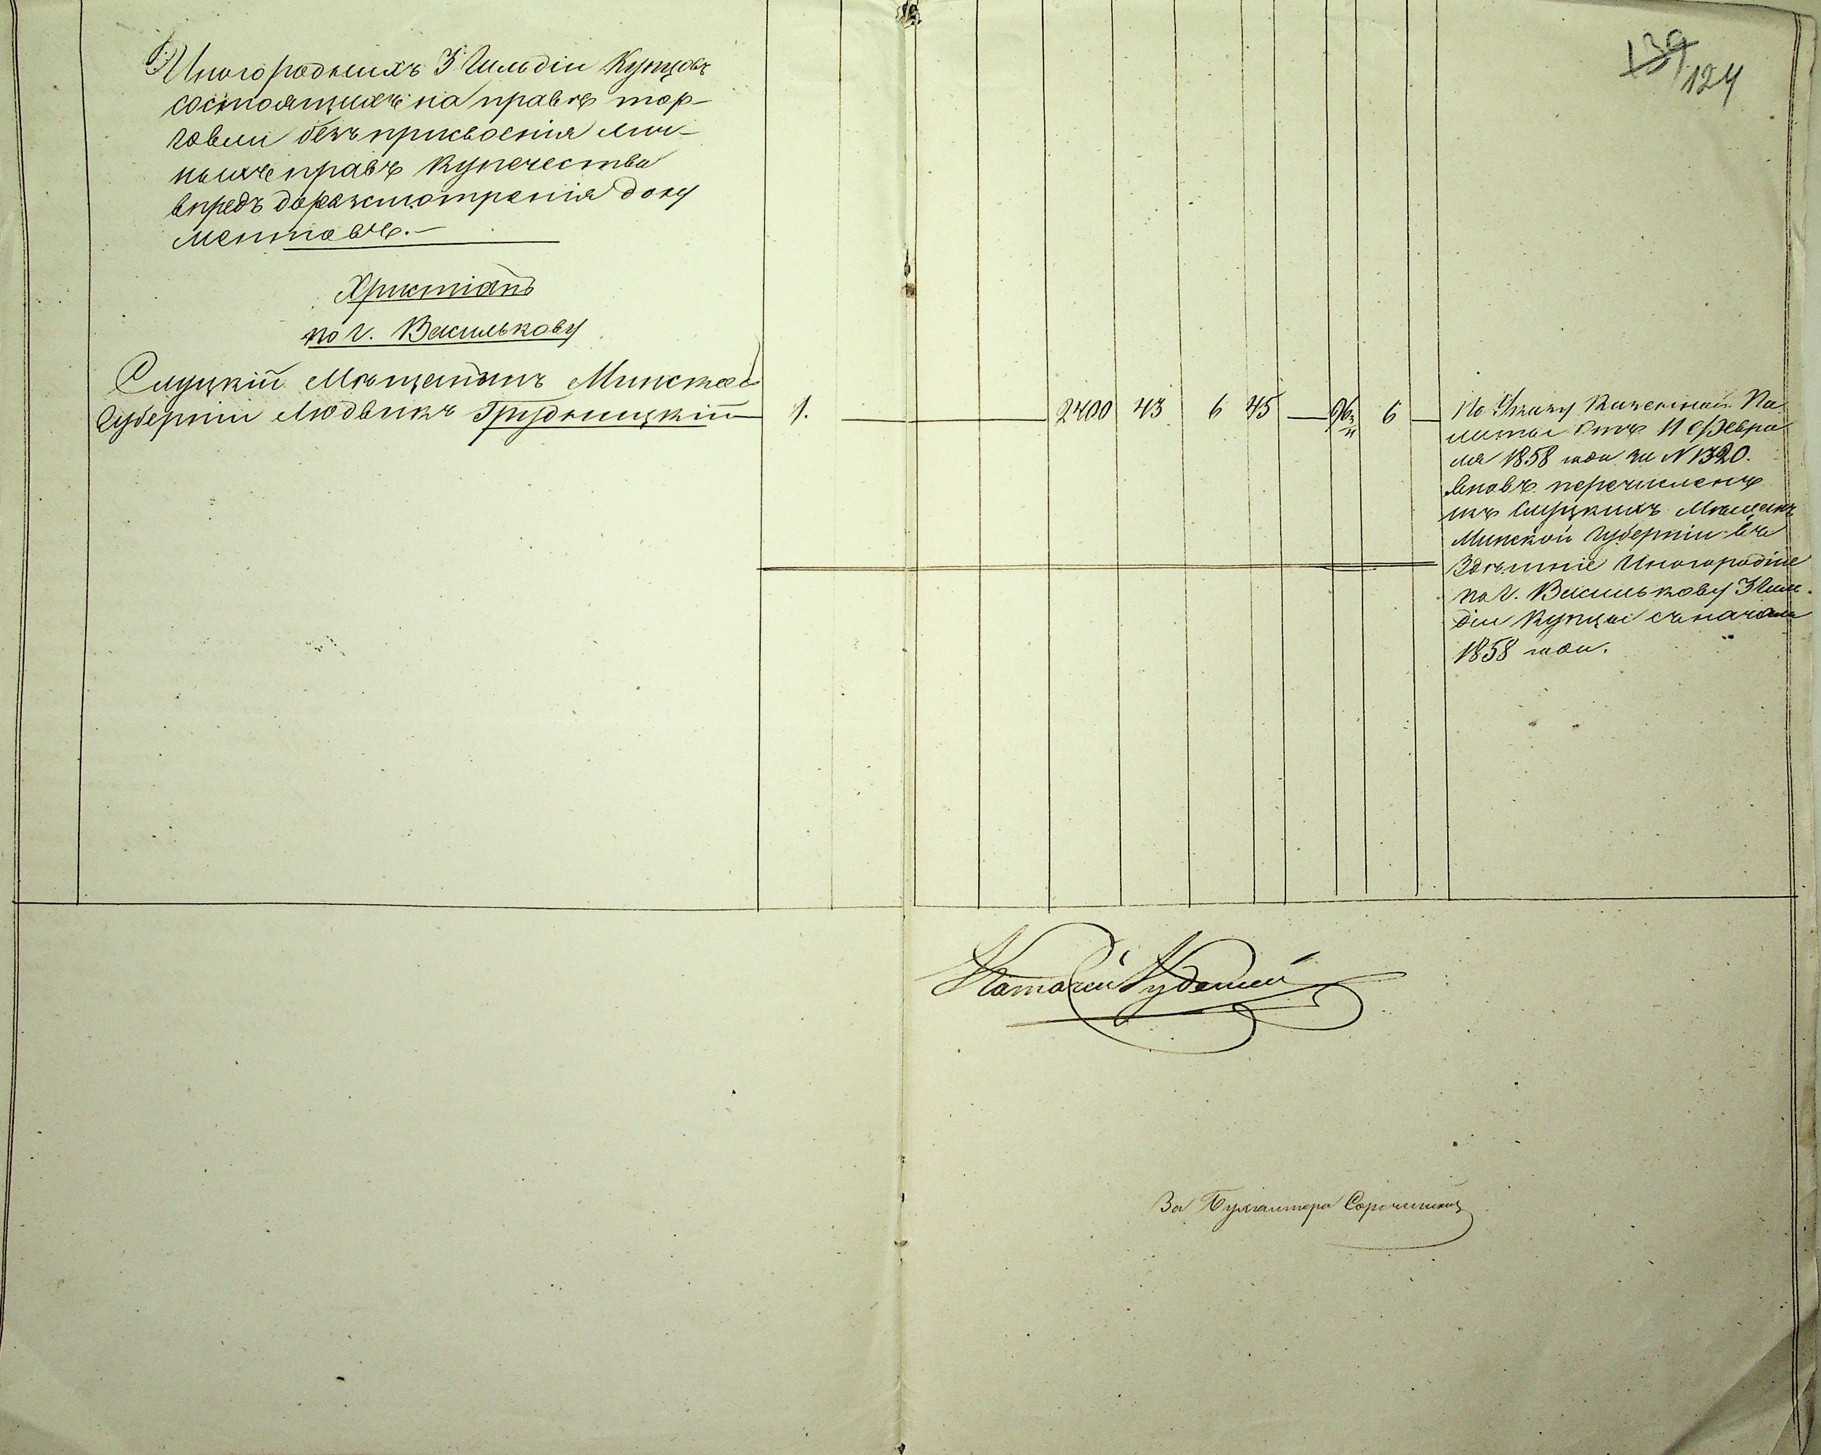 139
124
Иногороднихъ 3 Гильдіи Купцовъ
состоящихъ на правѣ тор-
говли безъ присвоенія лич-
ныхъ правъ Купечества
впредь до разсмотренія доку
ментовъ.—
Христіанъ
по г. Василькову
Слуцкій Мѣщанинъ Минской
Губерніи Людвикъ Грудницкій
1. 2400 43 6 45 6
По Указу Казенной Па
латы отъ 11 Февра
ля 1858 года за N 1320.
вновь перечисленъ
изъ Слуцкихъ Мѣщанъ
Минской Губерніи въ
Здѣшніе Иногородніе
по г. Василькову 3 Гиль
діи Купцы съ начала
1858 года.
За Бухгалтера